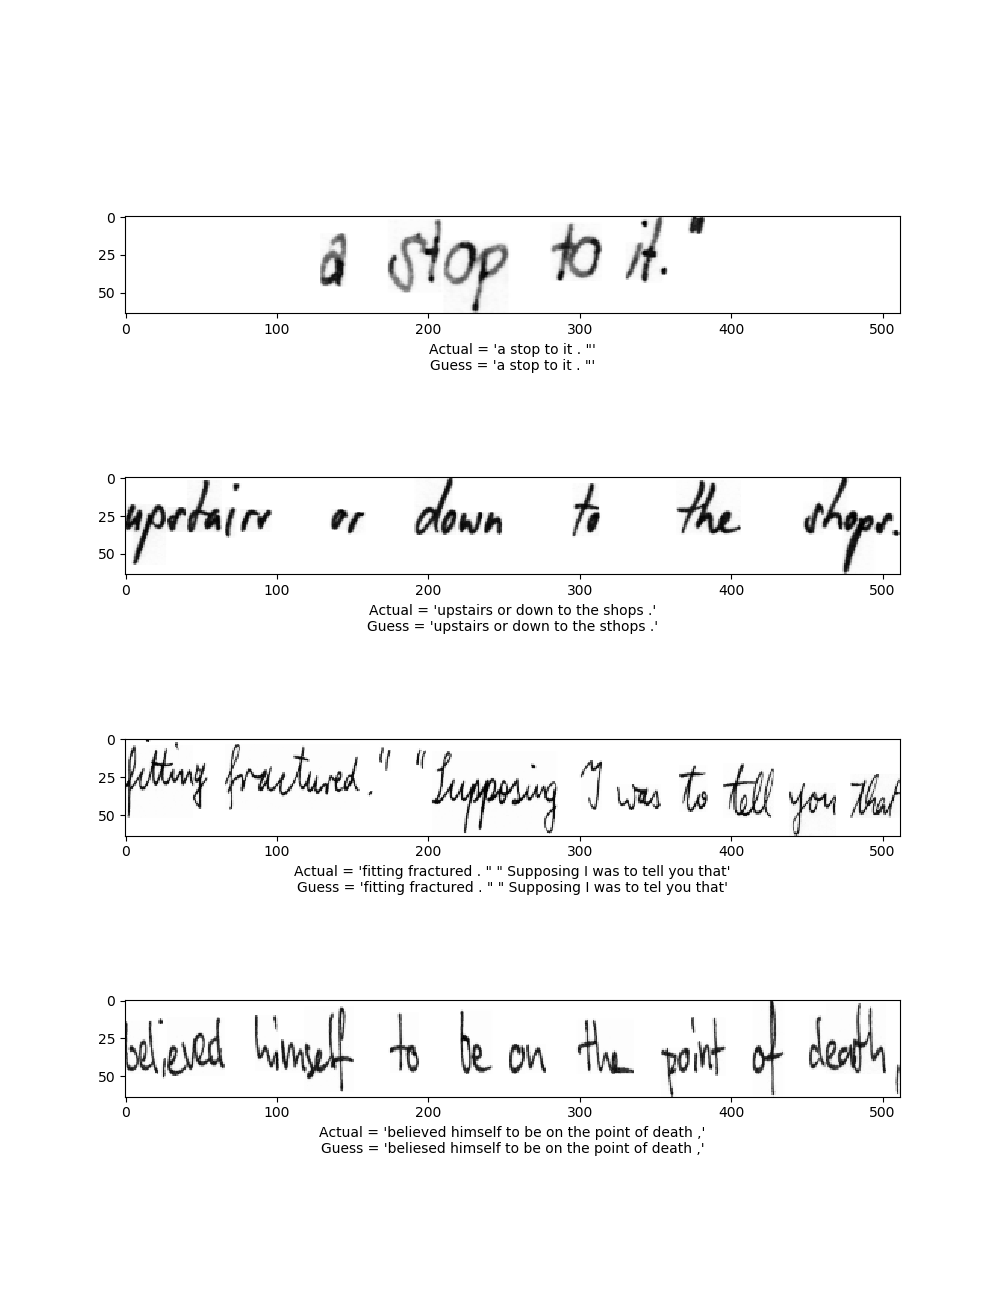 a stop to it."
0
25
50
0 100 200 300 400 500
Actual = 'a stop to it . "'
Guess = 'a stop to it . "'
upstairs or down to the shops.
0
25
50
0 100 200 300 400 500
Actual = 'upstairs or down to the shops .'
Guess = 'upstairs or down to the sthops .'
fitting fractured." "Supposing I was to tell you that
0
25
50
0 100 200 300 400 500
Actual = 'fitting fractured . " " Supposing I was to tell you that'
Guess = 'fitting fractured . " " Supposing I was to tel you that'
believed himself to be on the point of death,
0
25
50
0 100 200 300 400 500
Actual = 'believed himself to be on the point of death ,'
Guess = 'beliesed himself to be on the point of death ,'